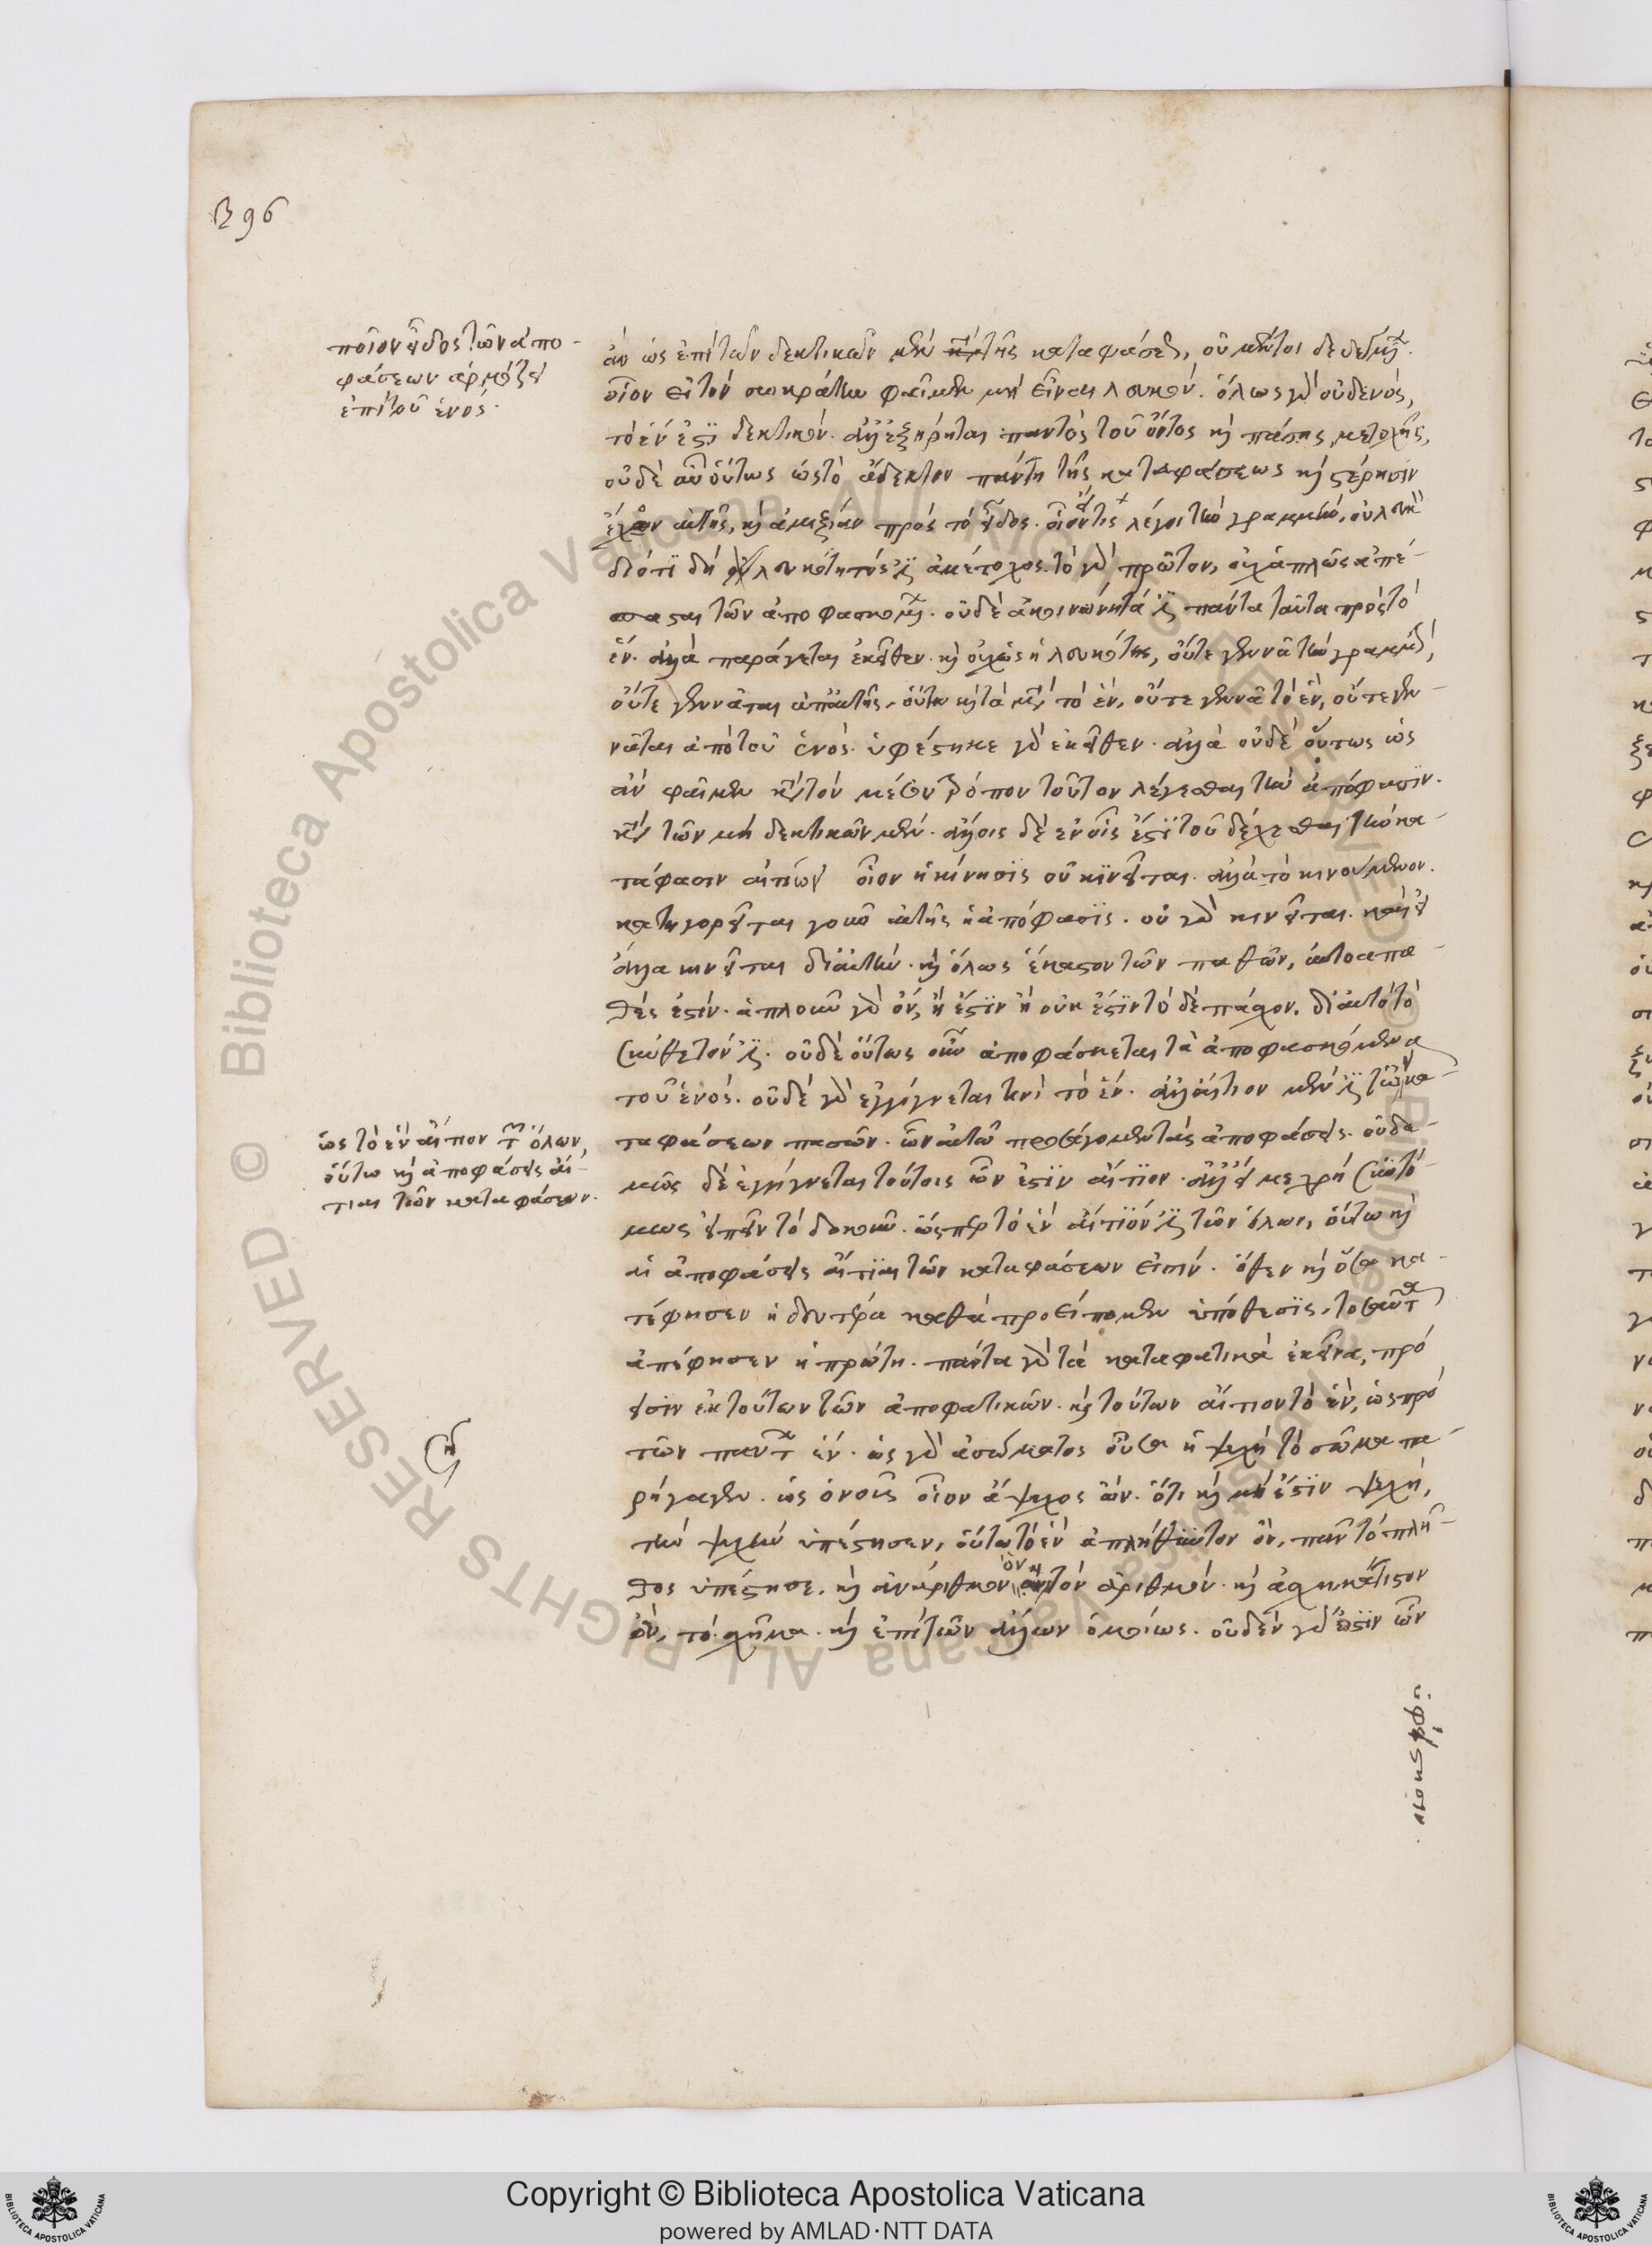 396
ποῖον εἶδος τῶν ἀπο-
φάσεων ἁρμόζει
ἐπὶ τοῦ ἑνός.
ἂν ὡς ἐπὶ τῶν δεκτικῶν μὲν τῆς καταφάσεως, οὐ μέντοι δε δεγμ
οἷον εἰ τὸν σωκράτην φαῖμεν μὴ εἶναι λευκόν. ὅλως γὰρ οὐδενός,
τὸ ἕν ἐστι δεκτικόν. ἀλλ' ἐξῄρηται παντὸς τοῦ ὄντος καὶ πάσης μετοχῆς,
οὐδὲ αὖ οὕτως ὡς τὸ ἄδεκτον πάντη τῆς καταφάσεως καὶ στέρησιν
ἔχον αὐτῆς, καὶ ἀμιξίαν πρὸς τὸ εἶδος. οἷον εἴ τις λέγοι τὴν γραμμὴν, οὐ λευκὴ
διότι δὴ λευκότητός ἐστιν ἀμέτοχος. τὸ γὰρ πρῶτον, οὐχ ἁπλῶς ἀπέ-
σπασται τῶν ἀποφασκομένων. οὐδὲ ἀκοινώνητά ἐστι πάντα ταῦτα πρὸς τὸ
ἕν. ἀλλὰ παράγεται ἐκεῖθεν. καὶ οὐχ ὡς ἡ λευκότης, οὔτε γεννᾷ τὴν γραμμήν,
οὔτε γεννᾶται ἀπ' αὐτῆς, οὕτω καὶ τὰ μετὰ τὸ ἕν, οὔτε γεννᾷ τὸ ἕν, οὔτε γεν-
νᾶται ἀπὸ τοῦ ἑνός. ὑφέστηκε γὰρ ἐκεῖθεν. ἀλλὰ οὐδὲ οὕτως ὡς
ἂν φαῖμεν κατὰ τὸν μέσον τρόπον τοῦτον λέγεσθαι τὴν ἀπόφασιν.
κατὰ τῶν μὴ δεκτικῶν μὲν. ἄλλοις δὲ ἐν οἷς ἐστὶ τοῦ δέχεσθαι τὴν κα-
τάφασιν αἰτίων οἷον ἡ κίνησις οὐ κινεῖται. ἀλλὰ τὸ κινούμενον.
κατηγορεῖται γοῦν αὐτῆς ἡ ἀπόφασις. οὐ γὰρ κινεῖται. καὶ εἰ
ἄλλα κινεῖται δι' αὐτήν. καὶ ὅλως ἕκαστον τῶν παθῶν, αὐτὸ ἀπα-
θές ἐστίν. ἁπλοῦν γὰρ ὂν, ἢ ἔστιν ἢ οὐκ ἔστιν τὸ δὲ πάσχον. δι' αὐτὸ τὸ
σύνθετόν ἐστι. οὐδὲ οὕτως οὖν ἀποφάσκεται τὰ ἀποφασκόμενα
τοῦ ἑνός. οὐδὲ γὰρ ἐγγίγνεται τινὶ τὸ ἕν. ἀλλ' αἴτιον μὲν ἐστι τῶν κα-
ταφάσεων πασῶν. ὧν αὐτῷ προσάγομεν τὰς ἀποφάσεις. οὐδα-
μῶς δὲ ἐγγίγνεται τούτοις ὧν ἐστὶν αἴτιον. ἀλλ' εἴ με χρὴ συντό-
μως εἰπεῖν τὸ δοκοῦν. ὥσπερ τὸ ἕν αἴτιόν ἐστι τῶν ὅλων, οὕτω καὶ
αἱ ἀποφάσεις αἴτιαι τῶν καταφάσεων εἰσίν. ὅθεν καὶ ὅσα κα-
τέφησεν ἡ δευτέρα καθὰ προείπομεν ὑπόθεσις, τοσαῦτα
ἀπέφησεν ἡ πρώτη. πάντα γὰρ τὰ καταφατικὰ ἐκεῖνα, πρό
εισιν ἐκ τούτων τῶν ἀποφατικῶν. καὶ τούτων αἴτιον τὸ ἕν, ὡς πρὸ
τῶν πάντων ἕν. ὡς γὰρ ἀσώματος οὖσα ἡ ψυχὴ τὸ σῶμα πα-
ρήγαγεν. ὡς ὁ νοῦς οἷον ἄψυχος ὢν. ὅτι καὶ μὴ ἔστιν ψυχή,
τὴν ψυχὴν ὑπέστησεν, οὕτω τὸ ἕν ἀπλήθυντον ὂν, πᾶν τὸ πλῆ-
θος ὑπέστησε. καὶ ἀνάριθμον ὂν τὸν ἀριθμόν. καὶ ἀσχημάτιστον
ὂν, τὸ σχῆμα. καὶ ἐπὶ τῶν ἄλλων ὁμοίως. οὐδὲν γάρ ἐστιν ὧν
ὡς τὸ ἕν αἴτιον τῶν ὅλων,
οὕτω καὶ ἀποφάσεις αἴ-
τιαι τῶν καταφάσεων.
ὑφίστησιν.